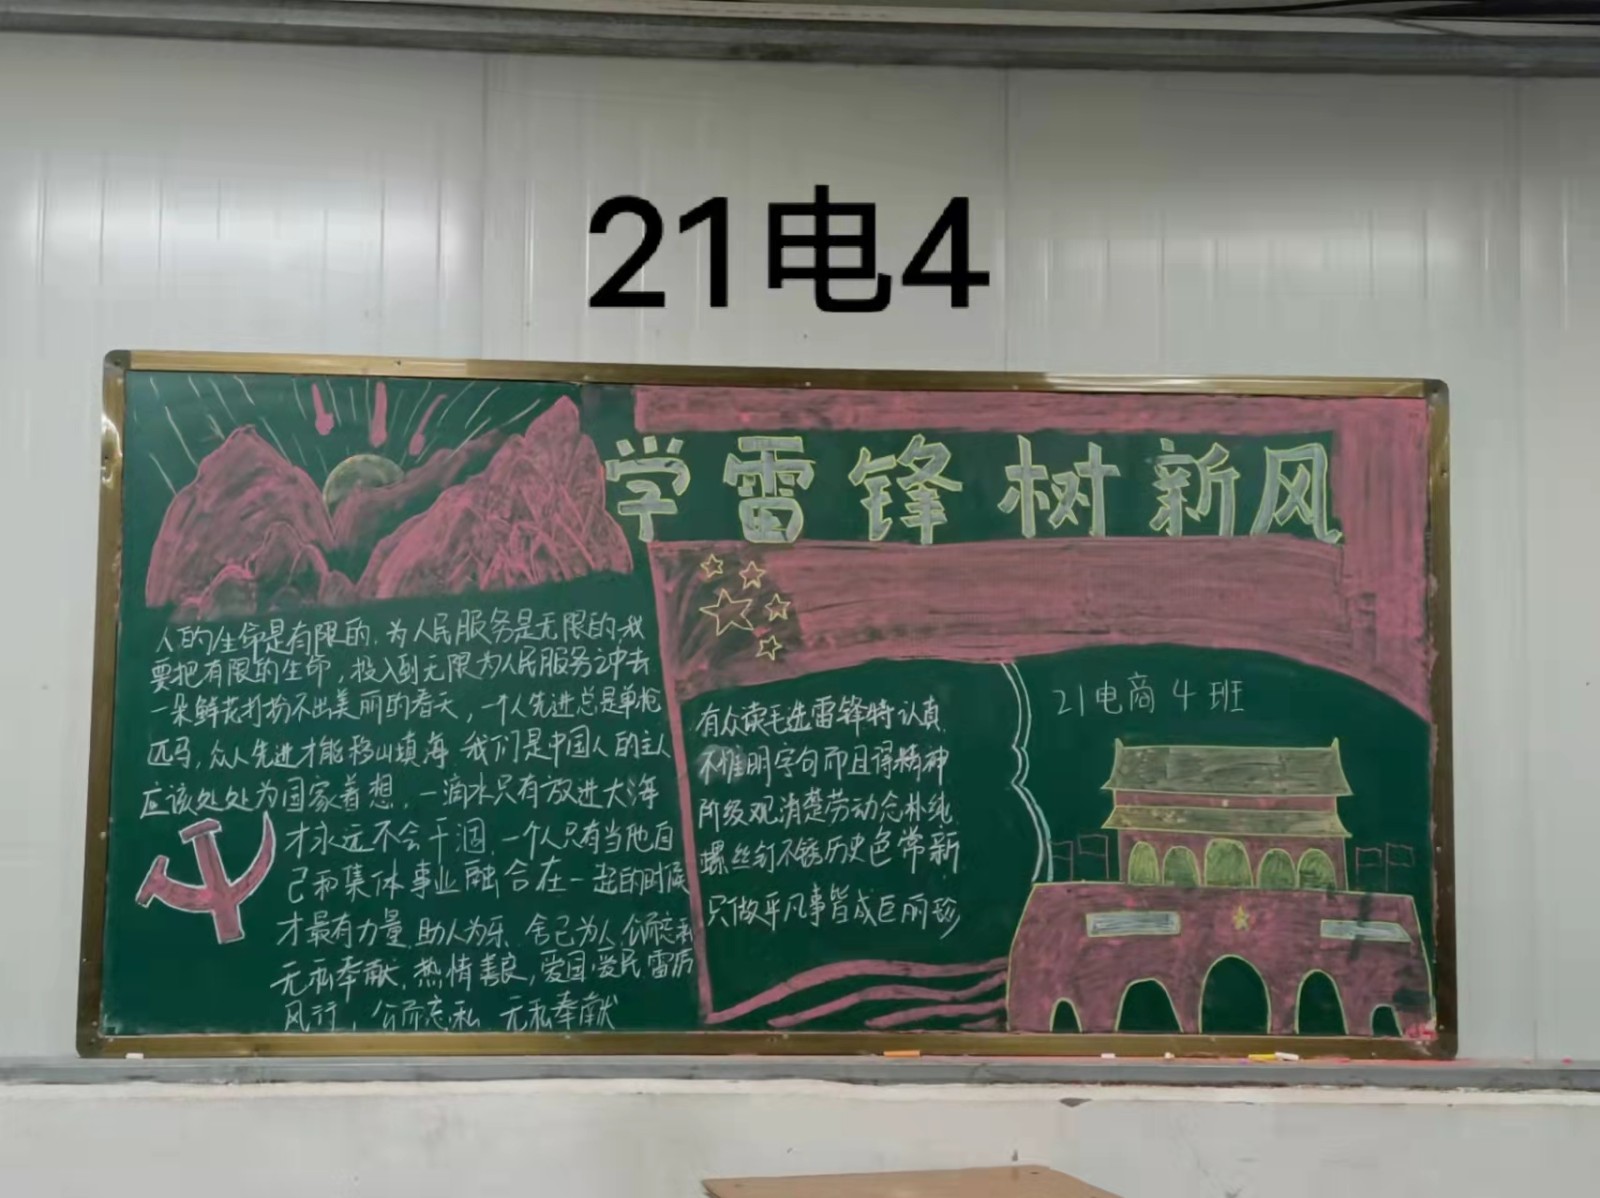 21电4
学雷锋树新风
人的生命是有限的，为人民服务是无限的，我
要把有限的生命，投入到无限为人民服务之中去
一朵鲜花打扮不出美丽的春天，一个人先进总是单枪
匹马，众人先进才能移山填海，我们是中国人的主人
应该处处为国家着想，一滴水只有放进大海
才永远不会干涸，一个人只有当他自
己和集体事业融合在一起的时候
才最有力量，助人为乐，舍己为人，公而忘私
无私奉献，热情善良，爱国爱民，雷厉
风行，公而忘私 无私奉献
有众读毛选雷锋特认真
不惟明字句而且得精神
阶级观消楚劳动念朴纯
螺丝钉不锈历史色常新
只做平凡事皆成巨丽珍
21电商4班